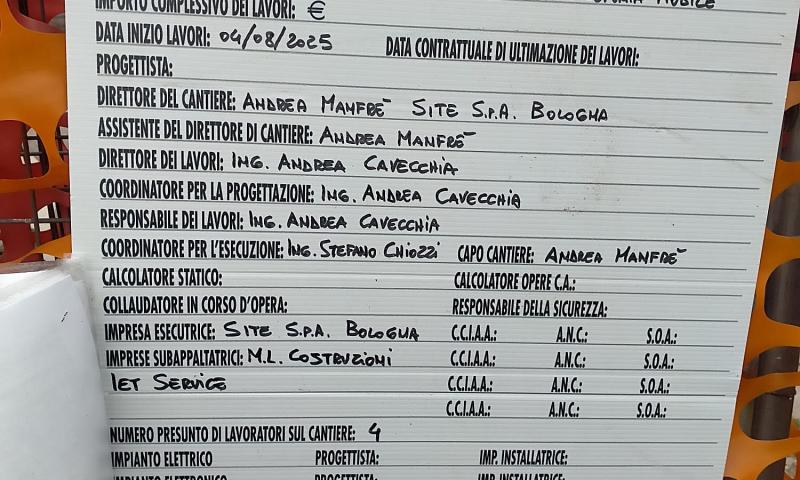 IMPORTO COMPLESSIVO DEI LAVORI: €
DATA INIZIO LAVORI: 04/08/2025 DATA CONTRATTUALE DI ULTIMAZIONE DEI LAVORI:
PROGETTISTA:
DIRETTORE DEL CANTIERE: ANDREA MANFRE' SITE S.P.A. BOLOGNA
ASSISTENTE DEL DIRETTORE DI CANTIERE: ANDREA MANFRE'
DIRETTORE DEI LAVORI: ING. ANDREA CAVECCHIA
COORDINATORE PER LA PROGETTAZIONE: ING. ANDREA CAVECCHIA
RESPONSABILE DEI LAVORI: ING. ANDREA CAVECCHIA
COORDINATORE PER L'ESECUZIONE: ING. STEFANO CHIOZZI CAPO CANTIERE: ANDREA MANFRE'
CALCOLATORE STATICO: CALCOLATORE OPERE C.A.:
COLLAUDATORE IN CORSO D'OPERA: RESPONSABILE DELLA SICUREZZA:
IMPRESA ESECUTRICE: SITE S.P.A. BOLOGNA C.C.I.A.A.: A.N.C.: S.O.A.:
IMPRESE SUBAPPALTATRICI: M.L. COSTRUZIONI C.C.I.A.A.: A.N.C.: S.O.A.:
IET SERVICE C.C.I.A.A.: A.N.C.: S.O.A.:
C.C.I.A.A.: A.N.C.: S.O.A.:
NUMERO PRESUNTO DI LAVORATORI SUL CANTIERE: 4
IMPIANTO ELETTRICO PROGETTISTA: IMP. INSTALLATRICE:
IMPIANTO ELETTRONICO PROGETTISTA: IMP. INSTALLATRICE: